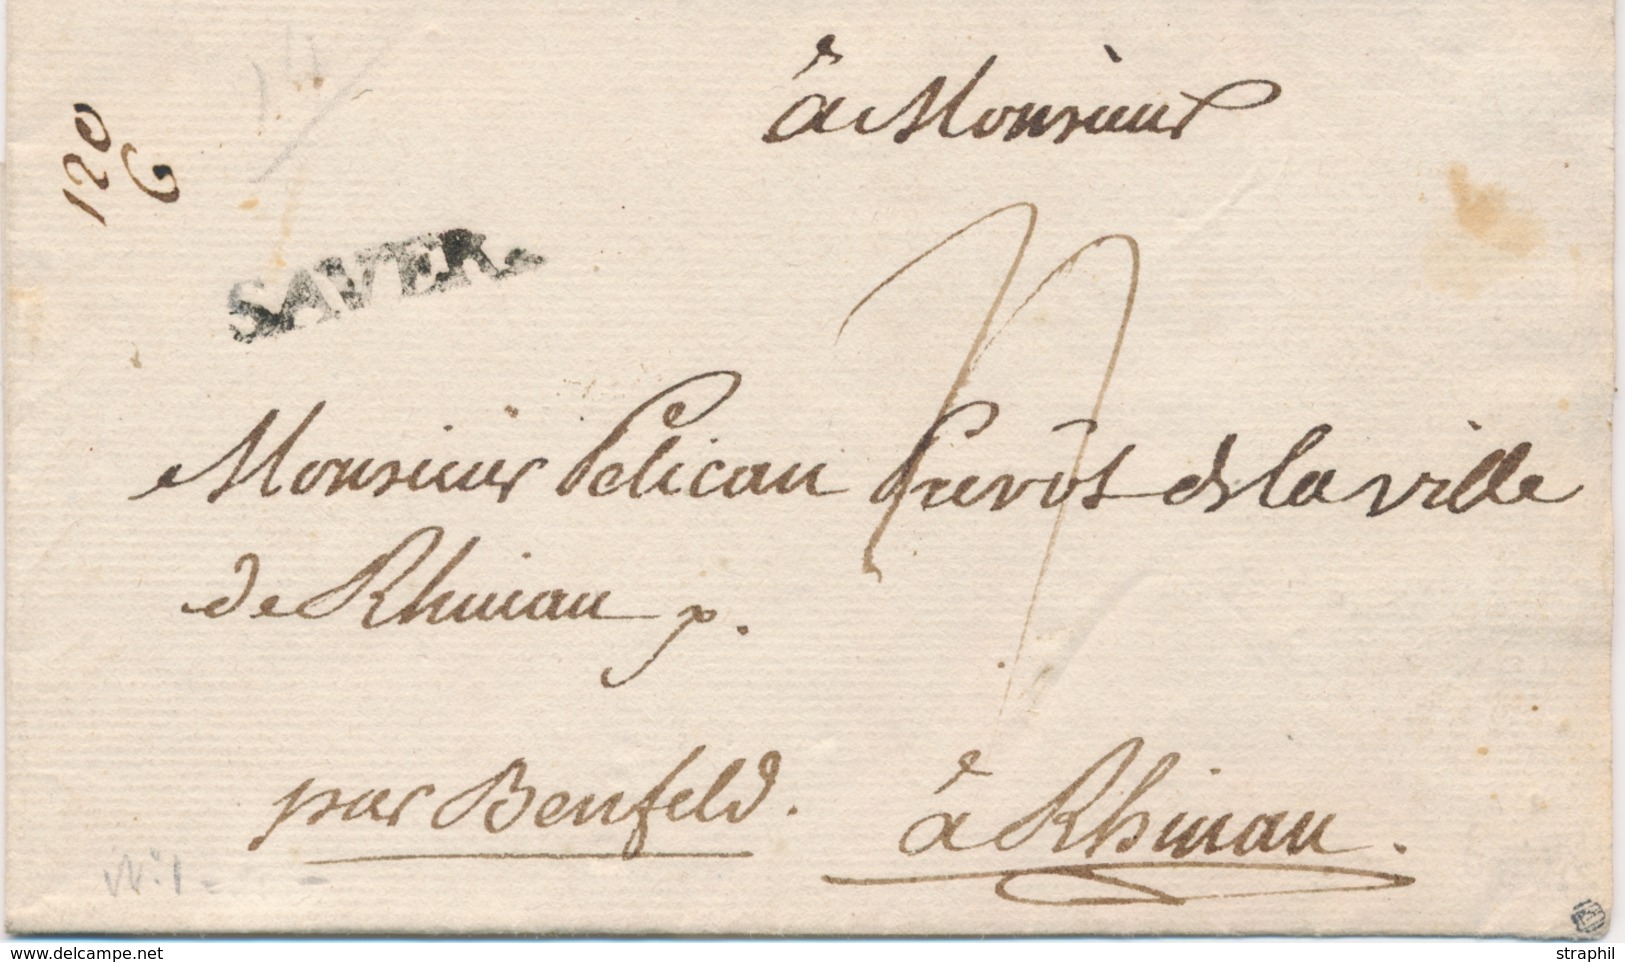 à Monsieur
120
6
SAVER.
Monsieur Pelican Prevôt de la ville
de Rhinau p.
par Benfeld.
à Rhinau.
N° 1
www.delcampe.net
straphil